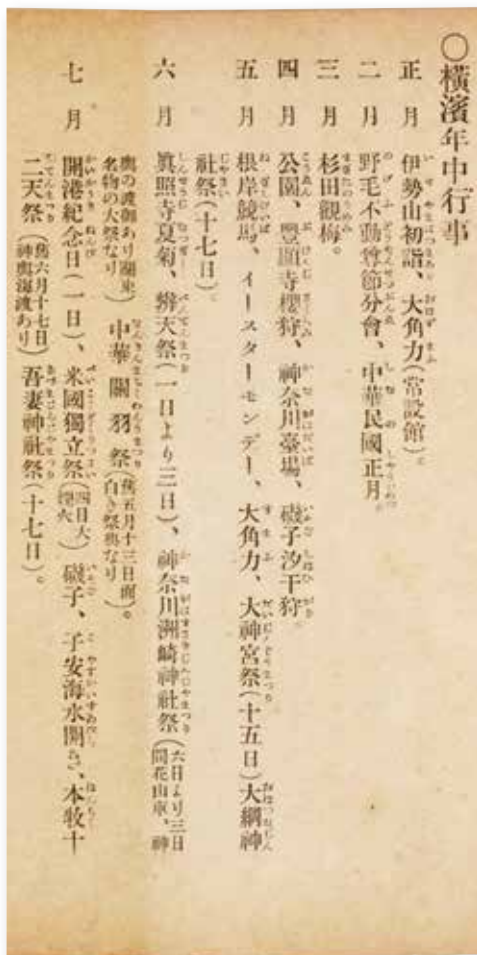 〇橫濱年中行事
正月 伊勢山初詣、大角力(常設館)。
二月 野毛不動尊節分會、中華民國正月。
三月 杉田觀梅。
四月 公園、豐顯寺櫻狩、神奈川臺場、磯子汐干狩。
五月 根岸競馬、イースターモンデー、大角力、大神宮祭(十五日)大綱神
社祭(十七日)。
六月 眞照寺夏菊、辨天祭(一日より三日)、神奈川洲崎神社祭(六日より三日間花山車、神
輿の渡御あり關東名物の大祭なり)中華關羽祭(舊五月十三日面白き祭典なり)。
七月 開港紀念日(一日)、米國獨立祭(四日大煙火)磯子、子安海水開き、本牧十
二天祭(舊六月十七日神輿海渡あり)吾妻神社祭(十七日)。